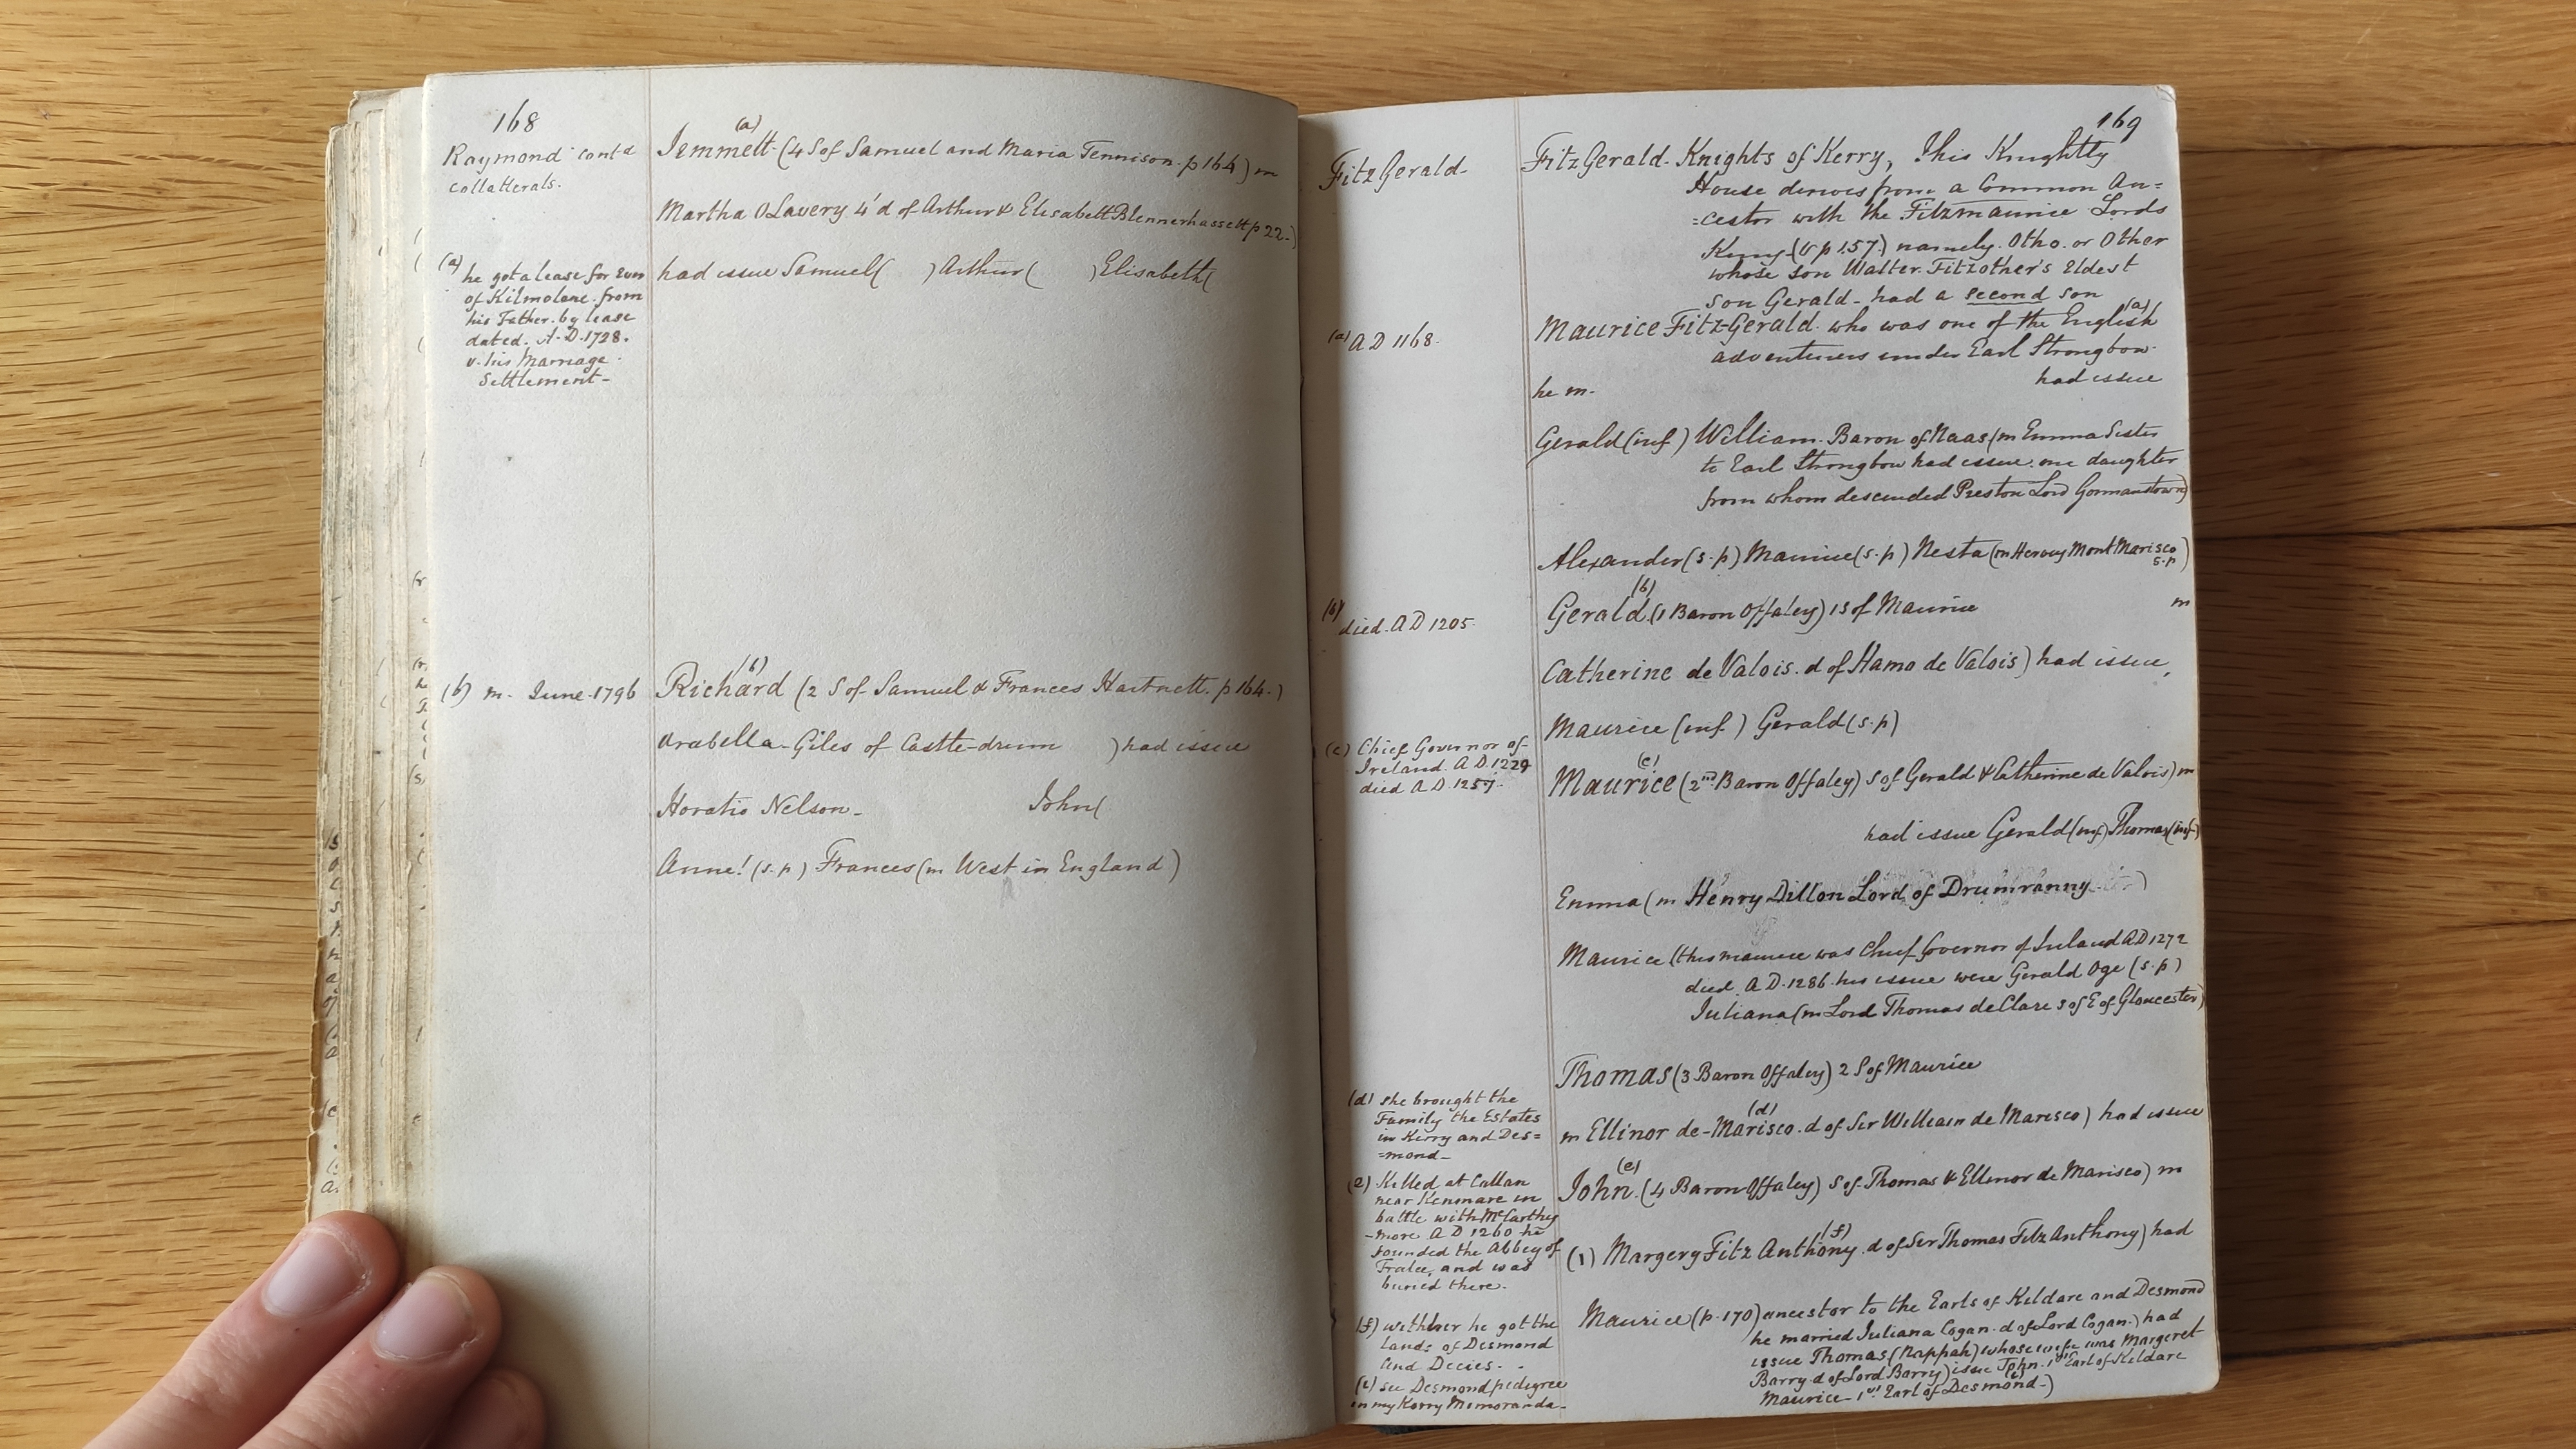 168
Raymond cont'd
collatterals.
(a)
Jemmett (4 S of Samuel and Maria Tennison. p 164) m
Martha OLavery 4'd of Arthur & Elisabeth Blennerhassett p 22.)
(a) he got a lease for Ever
of Kilmolane. from
his Father. by lease
dated. A.D. 1728.
v. his Marriage
Settlement-
had issue Samuel( ) Arthur( ) Elisabeth(
(b) m. June. 1796
(b)
Richard (2 S of Samuel & Frances Hartnett. p 164.)
Arabella Giles of Castle-drum ) had issue
Horatio Nelson_ John(
Anne! (s.p) Frances (m West in England)
169
FitzGerald-
FitzGerald. Knights of Kerry, This Knightly
House derives from a Common An=
=cestor with the Fitzmaurice Lords
Kerry (v p 157.) namely. Otho. or Other
whose son Walter. Fitzother's Eldest
son Gerald- had a second son
(a) AD 1168.
(a)
Maurice Fitz-Gerald. who was one of the English
adventurers under Earl Strongbow.
had issue
he m.
Gerald (inf) William. Baron of Naas (m Emma Sister
to Earl Strongbow had issue. one daughter
from whom descended Preston Lord Gormanstown)
Alexander (s.p) Maurice (s.p) Nesta (m Hervey Mont Marisco
s.p)
(b)
died. AD 1205.
(b)
Gerald. (1 Baron Offaley) 1 S of Maurice m
Catherine de Valois. d of Hamo de Valois) had issue,
Maurice (inf) Gerald (s.p)
(c) Chief Governor of
Ireland. A.D. 1229
died A.D. 1257.
(c)
Maurice (2nd Baron Offaley) S of Gerald & Catherine de Valois) m
had issue Gerald (inf) Thomas (inf)
Emma (m Henry Dillon Lord of Drumranny )
Maurice (this maurice was Chief Governor of Ireland AD 1272
died. A D. 1286. his issue were Gerald Oge (s.p)
Juliana (m Lord Thomas de Clare s of E of Gloucester)
Thomas (3 Baron Offaley) 2 S of Maurice
(d) she brought the
Family the Estates
in Kerry and Des=
=mond_
(d)
m Ellinor de-Marisco. d of Sir William de Marisco) had issue
(e) Killed at Callan
near Kenmare in
battle with McCarthy
-more A D 1260 he
founded the Abbey of
Tralee, and was
buried there.
(e)
John. (4 Baron Offaley) S of Thomas & Ellinor de Marisco) m
(f)
(1) Margery Fitz Anthony. d of Sir Thomas Fitz Anthony) had
(f) with her he got the
lands of Desmond
and Decies.
(i) see Desmond pedigree
in my Kerry Memoranda.
Maurice (p. 170) ancestor to the Earls of Kildare and Desmond
he married Juliana Cogan. d of Lord Cogan.) had
issue Thomas (Nappah) whose wife was Margeret
Barry. d of Lord Barry) issue John. 1st Earl of Kildare
(i)
Maurice- 1st Earl of Desmond.)